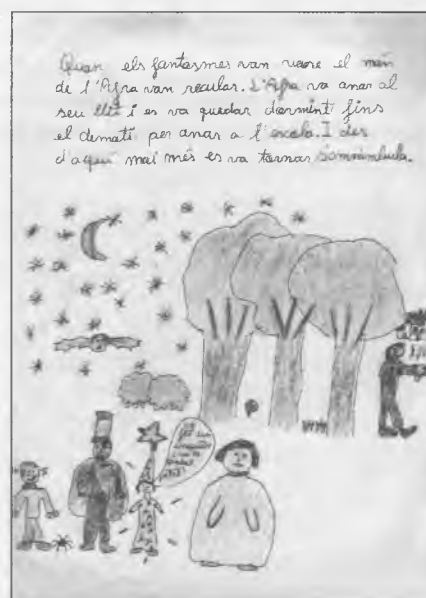 Quan els fantasmes van veure el món
de l'Afra van recular. L'Afra va anar al
seu llit i es va quedar dormint fins
el dematí per anar a l'escola. I des
d'aquí mai més es va tornar somnàmbula.